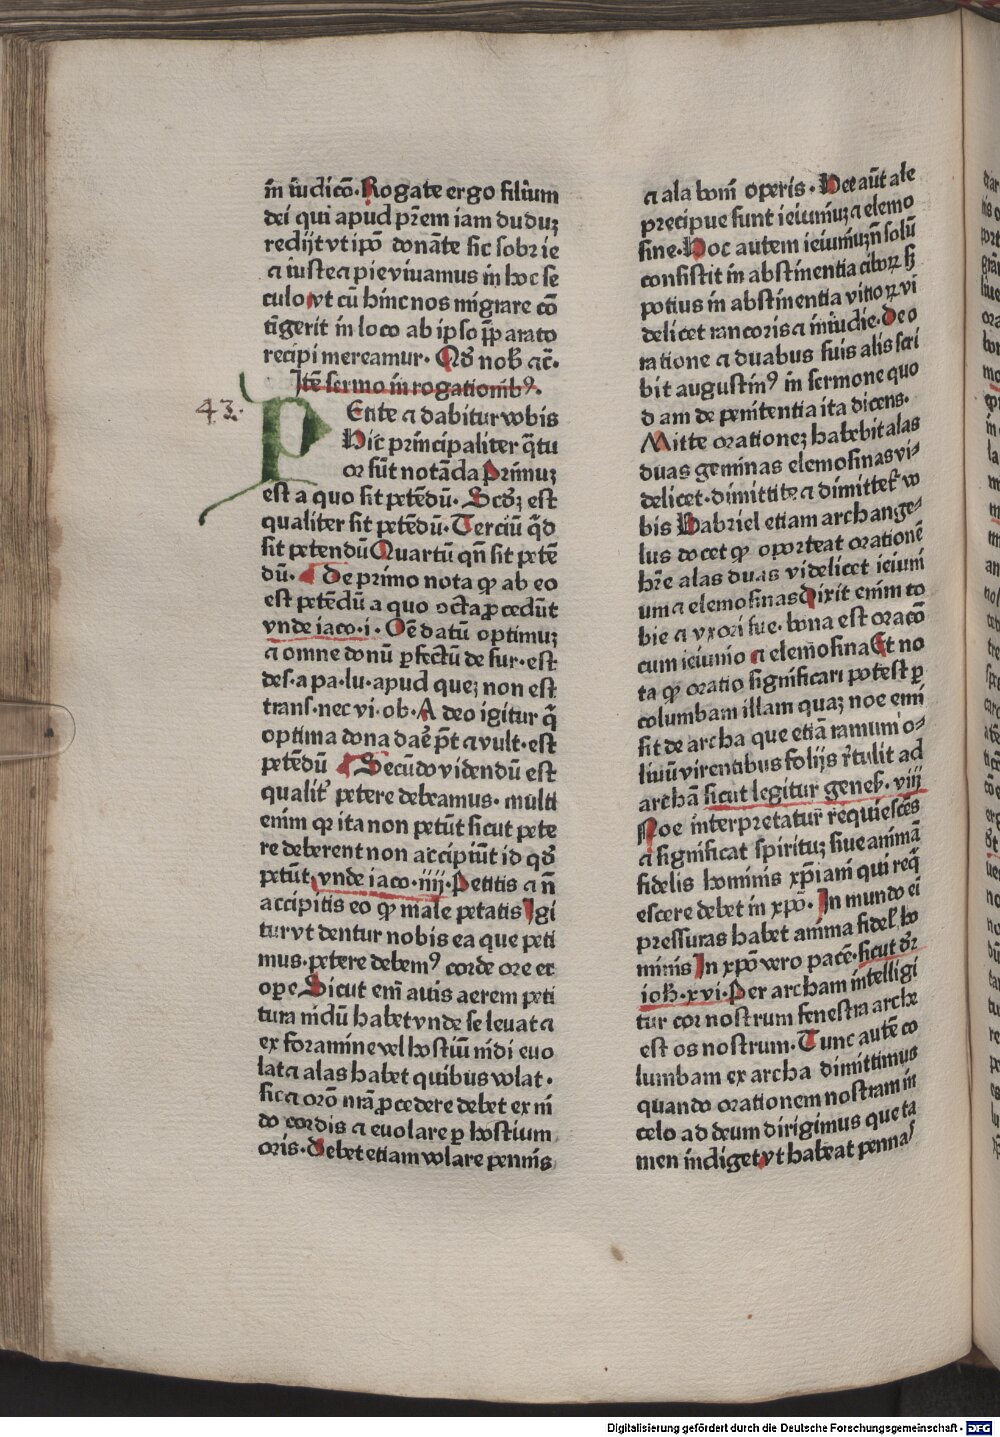 in iudicō. Rogate ergo filium
dei qui apud pr̄em iam duduꝫ
redijt vt ip̄o donāte sic sobrie
⁊ iuste ⁊ pie viuamus in hoc se
culo vt cū hinc nos migrare cō
tīgerit in loco ab ipso p̄parato
recipi mereamur. Qd̄ nob̄ ⁊c̄.
Itē sermo in rogationibꝰ.
43.
PEtite ⁊ dabitur vobis
Hic principaliter q̄tu
or sūt notāda Primuꝫ
est a quo sit petēdū. Scd̄ꝫ est
qualiter sit petēdū. Terciū q̄d
sit petendū Quartū qn̄ sit petē
dū. De primo nota ꝙ ab eo
est petēdū a quo oc̄ta ꝓcedūt
vnde iaco. i. Oē datū optimuꝫ
⁊ omne donū ꝑfectū de sur. est
des. a pa. lu. apud queꝫ non est
trans. nec vi. ob. A deo igitur q̄
optima dona daē p̄t ⁊ vult. est
petēdū Secūdo videndū est
qualit̄ petere debeamus. multi
enim qr ita non petūt sicut pete
re deberent non accipiūt id qd̄
petūt. vnde iaco. iiij. Petitis ⁊ n̄
accipitis eo ꝙ male petatis Igi
tur vt dentur nobis ea que peti
mus. petere debemꝰ corde ore et
oꝑe Sicut em̄ auis aerem peti
tura nidū habet vnde se leuat ⁊
ex foramine vel hostiū nidi euo
lat ⁊ alas habet quibus volat.
sic ⁊ orō nr̄a ꝓcedere debet ex ni
do cordis ⁊ euolare ꝑ hostium
oris. Debet etiam volare pennis
⁊ ala boni operis. Hee aūt ale
precipue sunt ieiuniuꝫ ⁊ elemo
sine. Hoc autem ieiuniuꝫ n̄ solū
consistit in abstinentia ciboꝝ sꝫ
potius in abstinentia vitioꝝ vi
delicet rancoris ⁊ inuidie. De o
ratione ⁊ duabus suis alis scri
bit augustinꝰ in sermone quo
dam de penitentia ita dicens.
Mitte orationeꝫ habebit alas
duas geminas elemosinas vi⸗
delicet. dimittite ⁊ dimittet̄ vo
bis Gabriel etiam archange⸗
lus docet ꝙ oporteat orationē
hr̄e alas duas videlicet ieiuni
um ⁊ elemosinas Dixit enim to
bie ⁊ vxori sue. bona est oracō
cum ieiunio ⁊ elemosina Et no
ta ꝙ oratio significari potest ꝑ
columbam illam quaꝫ noe emi
sit de archa que etiā ramum o⸗
liuū virentibus folijs r̄tulit ad
archā sicut legitur genes̄. viij
Noe interpretatur requiescēs
⁊ significat spirituꝫ siue animā
fidelis hominis xp̄iani qui req̄
escere debet in xp̄o. In mundo ei
pressuras habet anima fidel̄ ho
minis In xp̄o vero pacē. sicut dr̄
ioh̄. xvi. Per archam intelligi
tur cor nostrum fenestra arche
est os nostrum. Tunc autē co
lumbam ex archa dimittimus
quando orationem nostram in
celo ad deum dirigimus que ta
men indiget vt habeat pennas
Digitalisierung gefördert durch die Deutsche Forschungsgemeinschaft - DFG